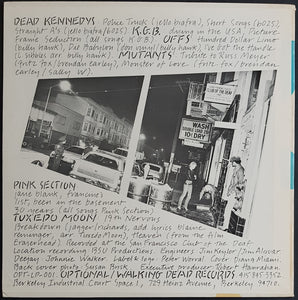 DEAD KENNEDYS Police Truck (jello biafra), Short Songs (6025),
Straight A's (jello biafra/6025) K.G.B. dying in the USA, Picture
Frame Seduction (all songs K.G.B.) OFFS Hundred Dollar Limo
(billy hawk), Die Babylon (don vinyl/billy hawk), I've Got the Handle
(billy hawk) MUTANTS Tribute to Russ Meyer
(fritz fox/brendan earley), Monster of Love (fritz fox/brendan
earley/sally w.)
WASH
10¢ DRY
PINK SECTION
(jane blank, francine),
list, been in the basement
30 years (all songs Pink Section)
TUXEDO MOON 19th Nervous
Breakdown (jagger/richards), add lyrics blaine
reininger, arr. Tuxedo Moon), Heaven (from the film
Eraserhead) Recorded at the San Francisco Club of the Deaf
Location recording 1350 Productions Engineers Jim Keylor/Jim Alovar
Deejay, Johnnie Walker. Label & logo Peter Worral Cover Diana Miami
Back cover Dirty Susan Pink Executive producer Robert Hanrahan
OPT-LP-001 OPTIONAL/WALKING DEAD RECORDS 415 848 3952
Berkeley Industrial Court Space 1, 729 Heinz Avenue, Berkeley 94710.